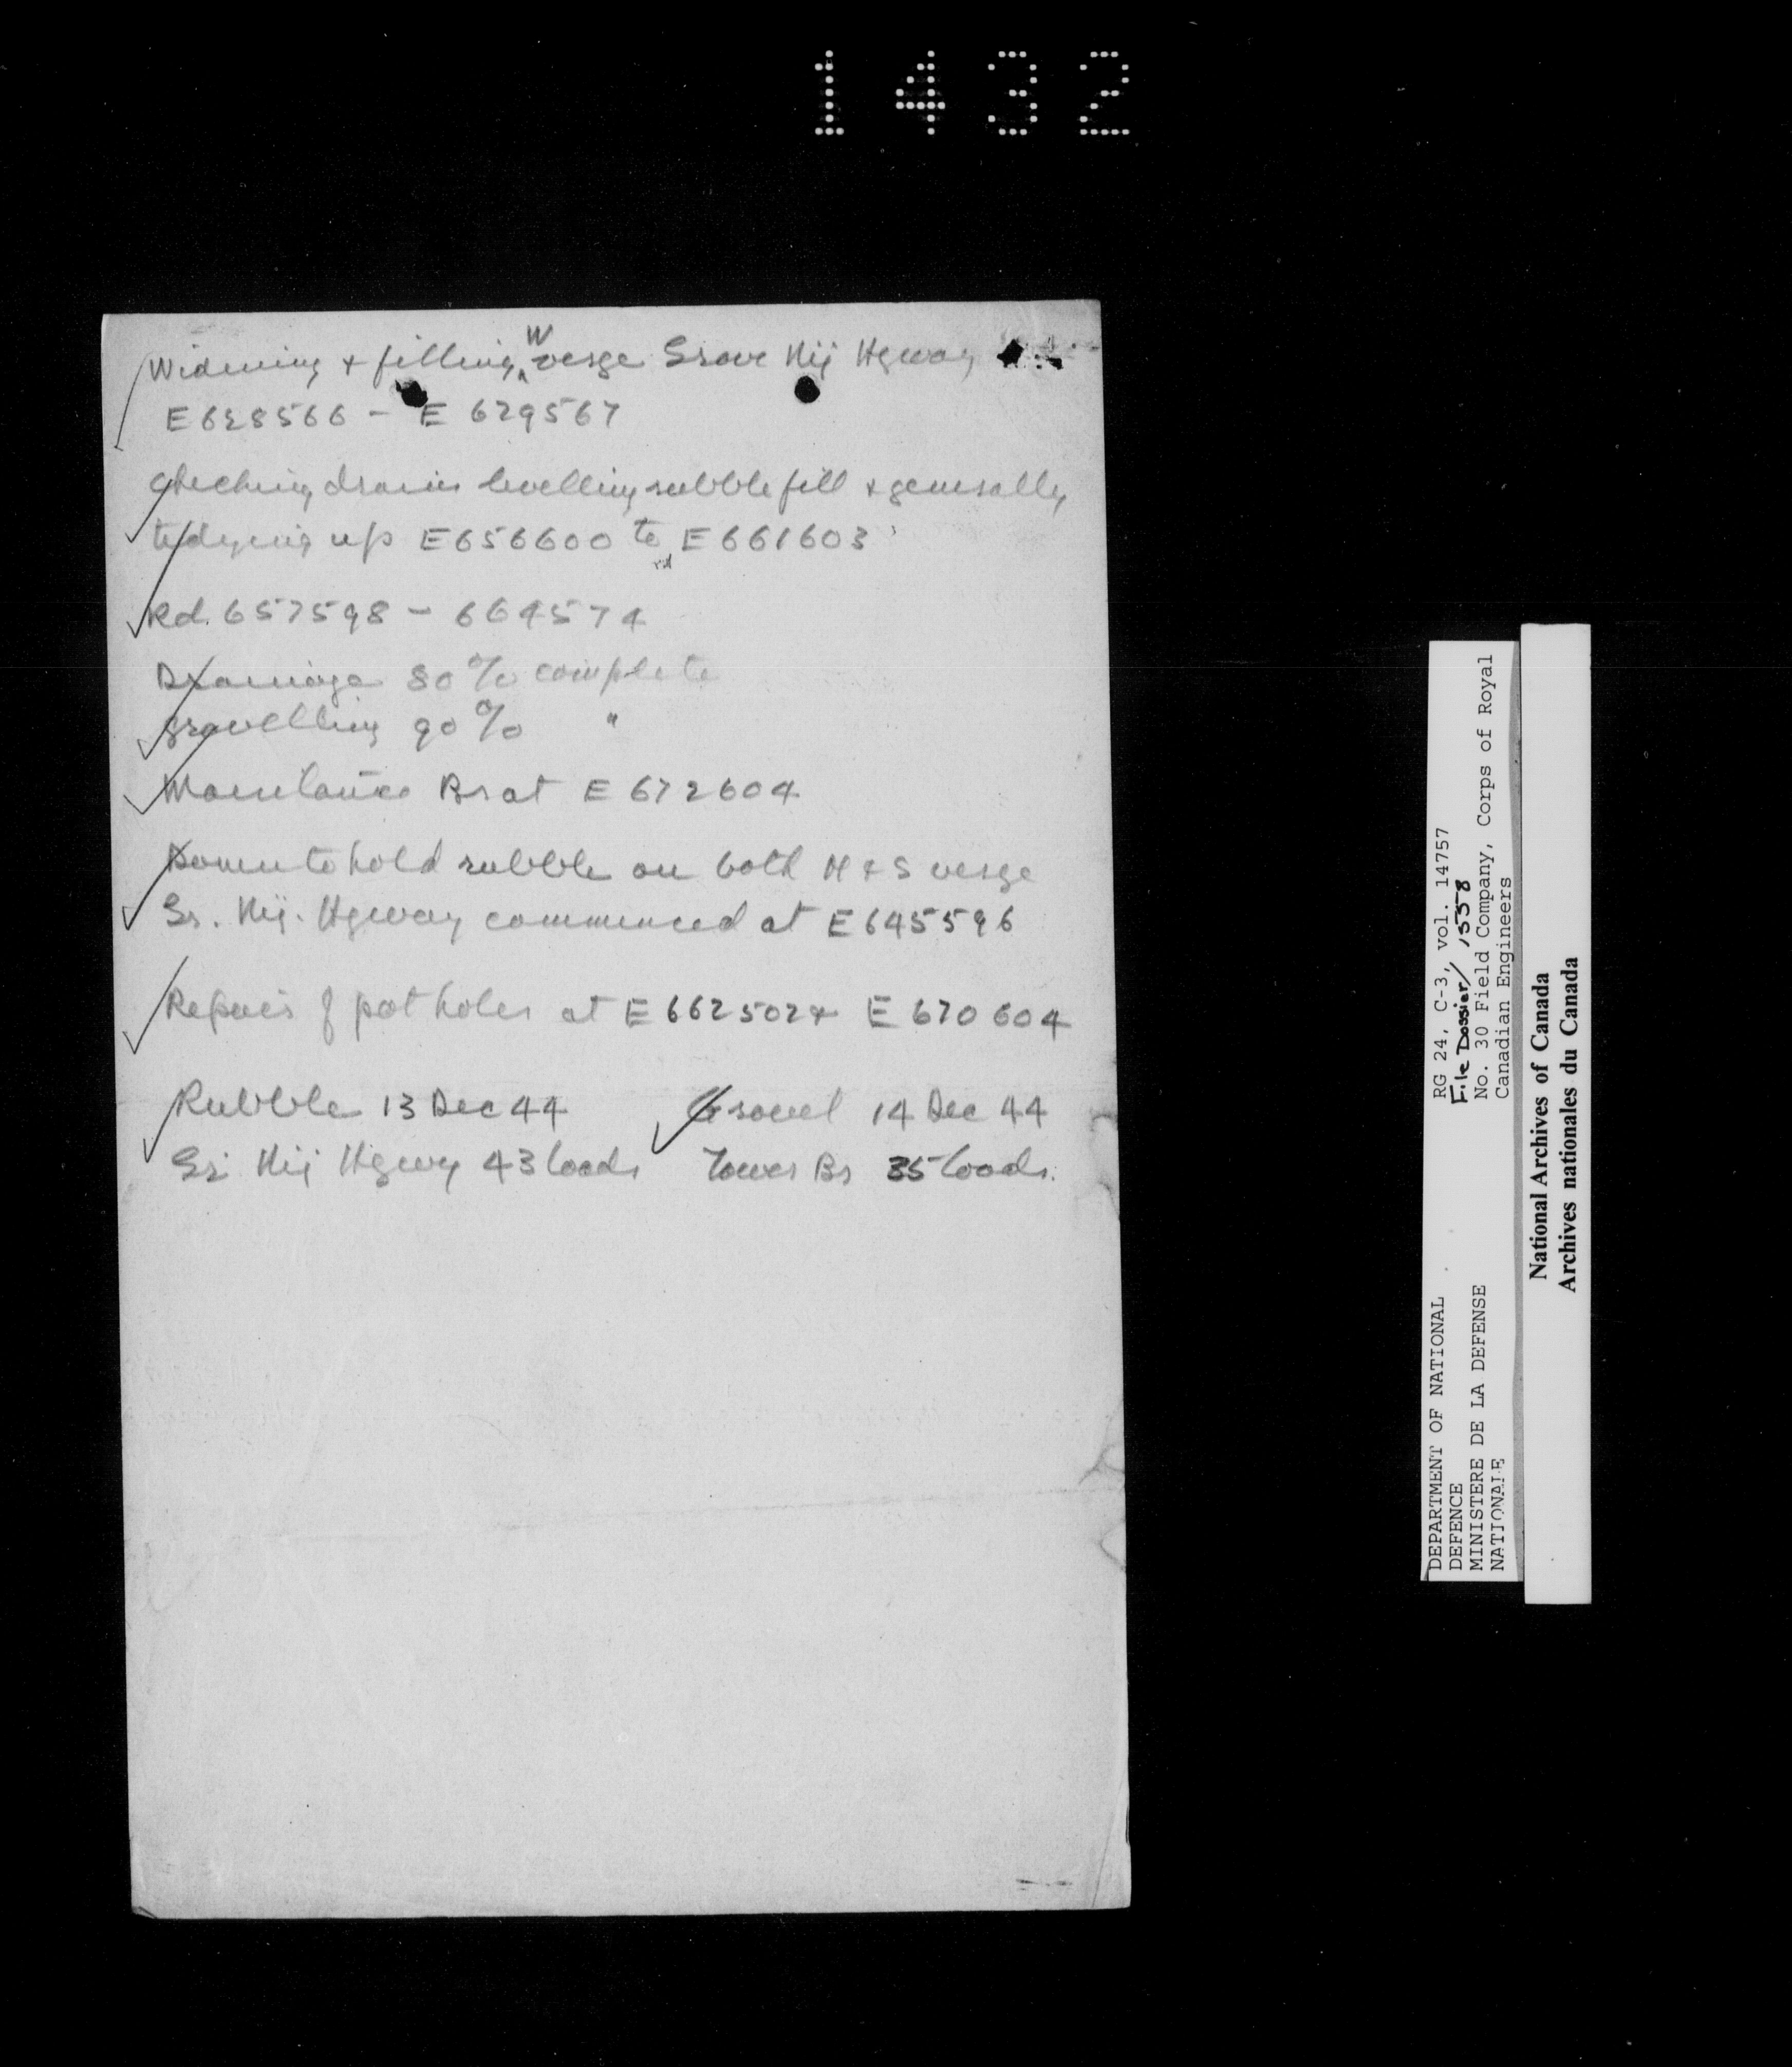 1432
Widening & filling W verge Grave Nij Hgway
E628566 - E 629567
Checking drains levelling rubble fill & generally
tidying up E656600 to E661603
Rd. 657598 - 664574
Drainage 80% complete
Gravelling 90% "
Br at E 672604
to hold rubble on both N & S verge
Gr. Nij. Hgway commenced at E645596
Repairs of potholes at E662502 & E 670604
Rubble 13 Dec 44 Gravel 14 Dec 44
Gr Nij Hgwy 43 loads Tower Br 35 loads.
RG 24, C-3, vol. 14757
File Dossier/ 1558
No. 30 Field Company, Corps of Royal
Canadian Engineers
DEPARTMENT OF NATIONAL
DEFENCE
MINISTERE DE LA DEFENSE
NATIONALE
National Archives of Canada
Archives nationales du Canada